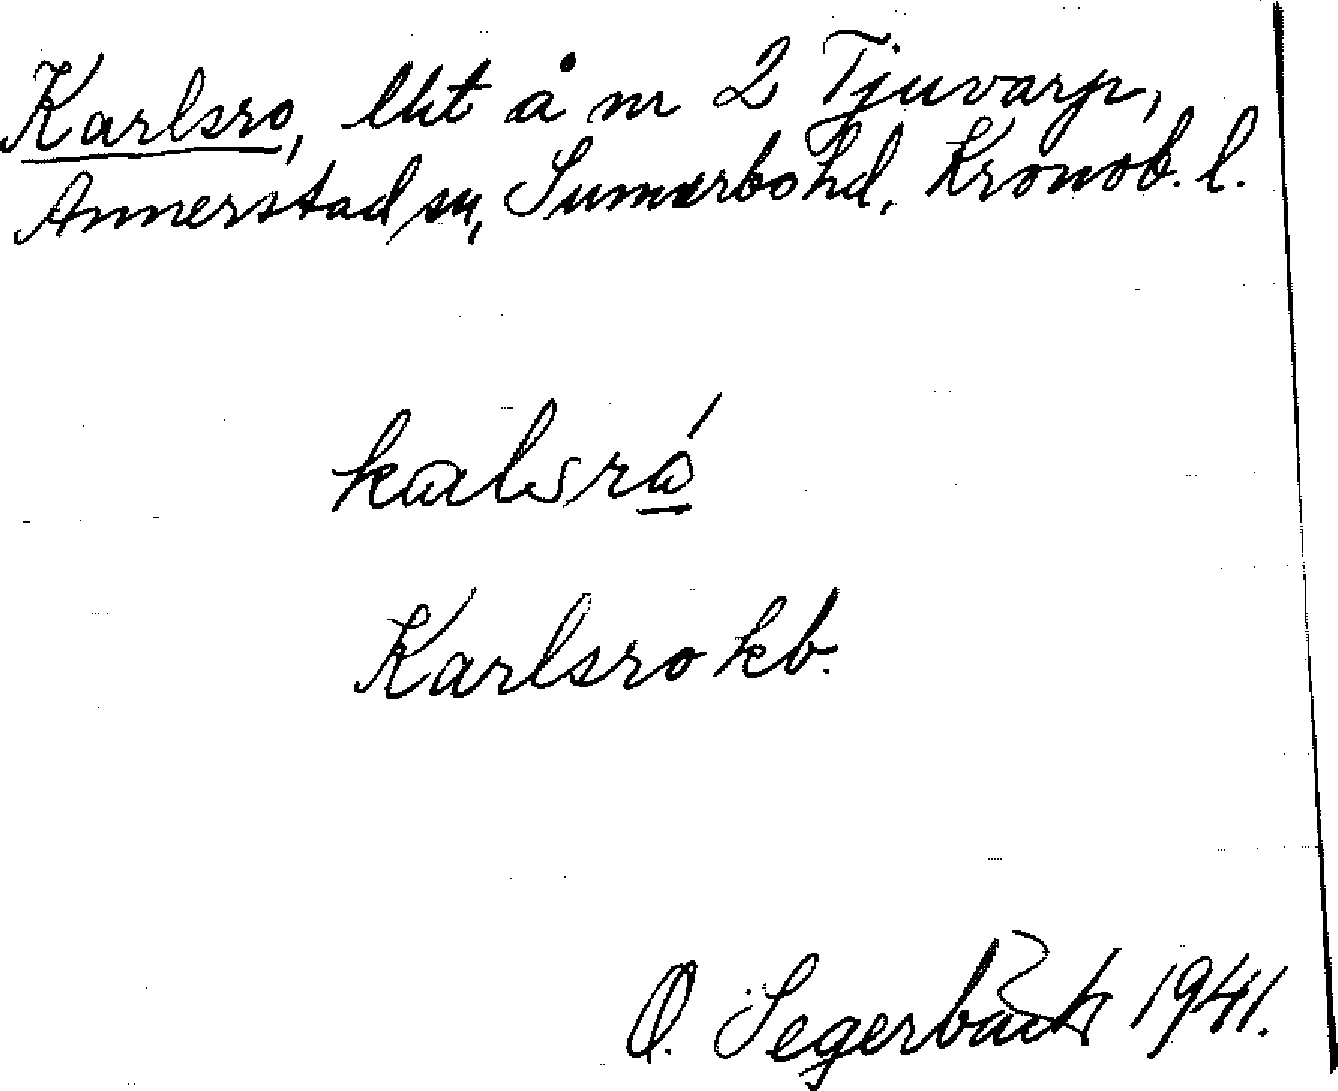 Karlsro, lht å nr 2 Tjuvarp,
Annerstad sn, Sunnerbo hd, Kronob. l.
kalsrá
Karlsro kb.
O. Segerbäck 1941.